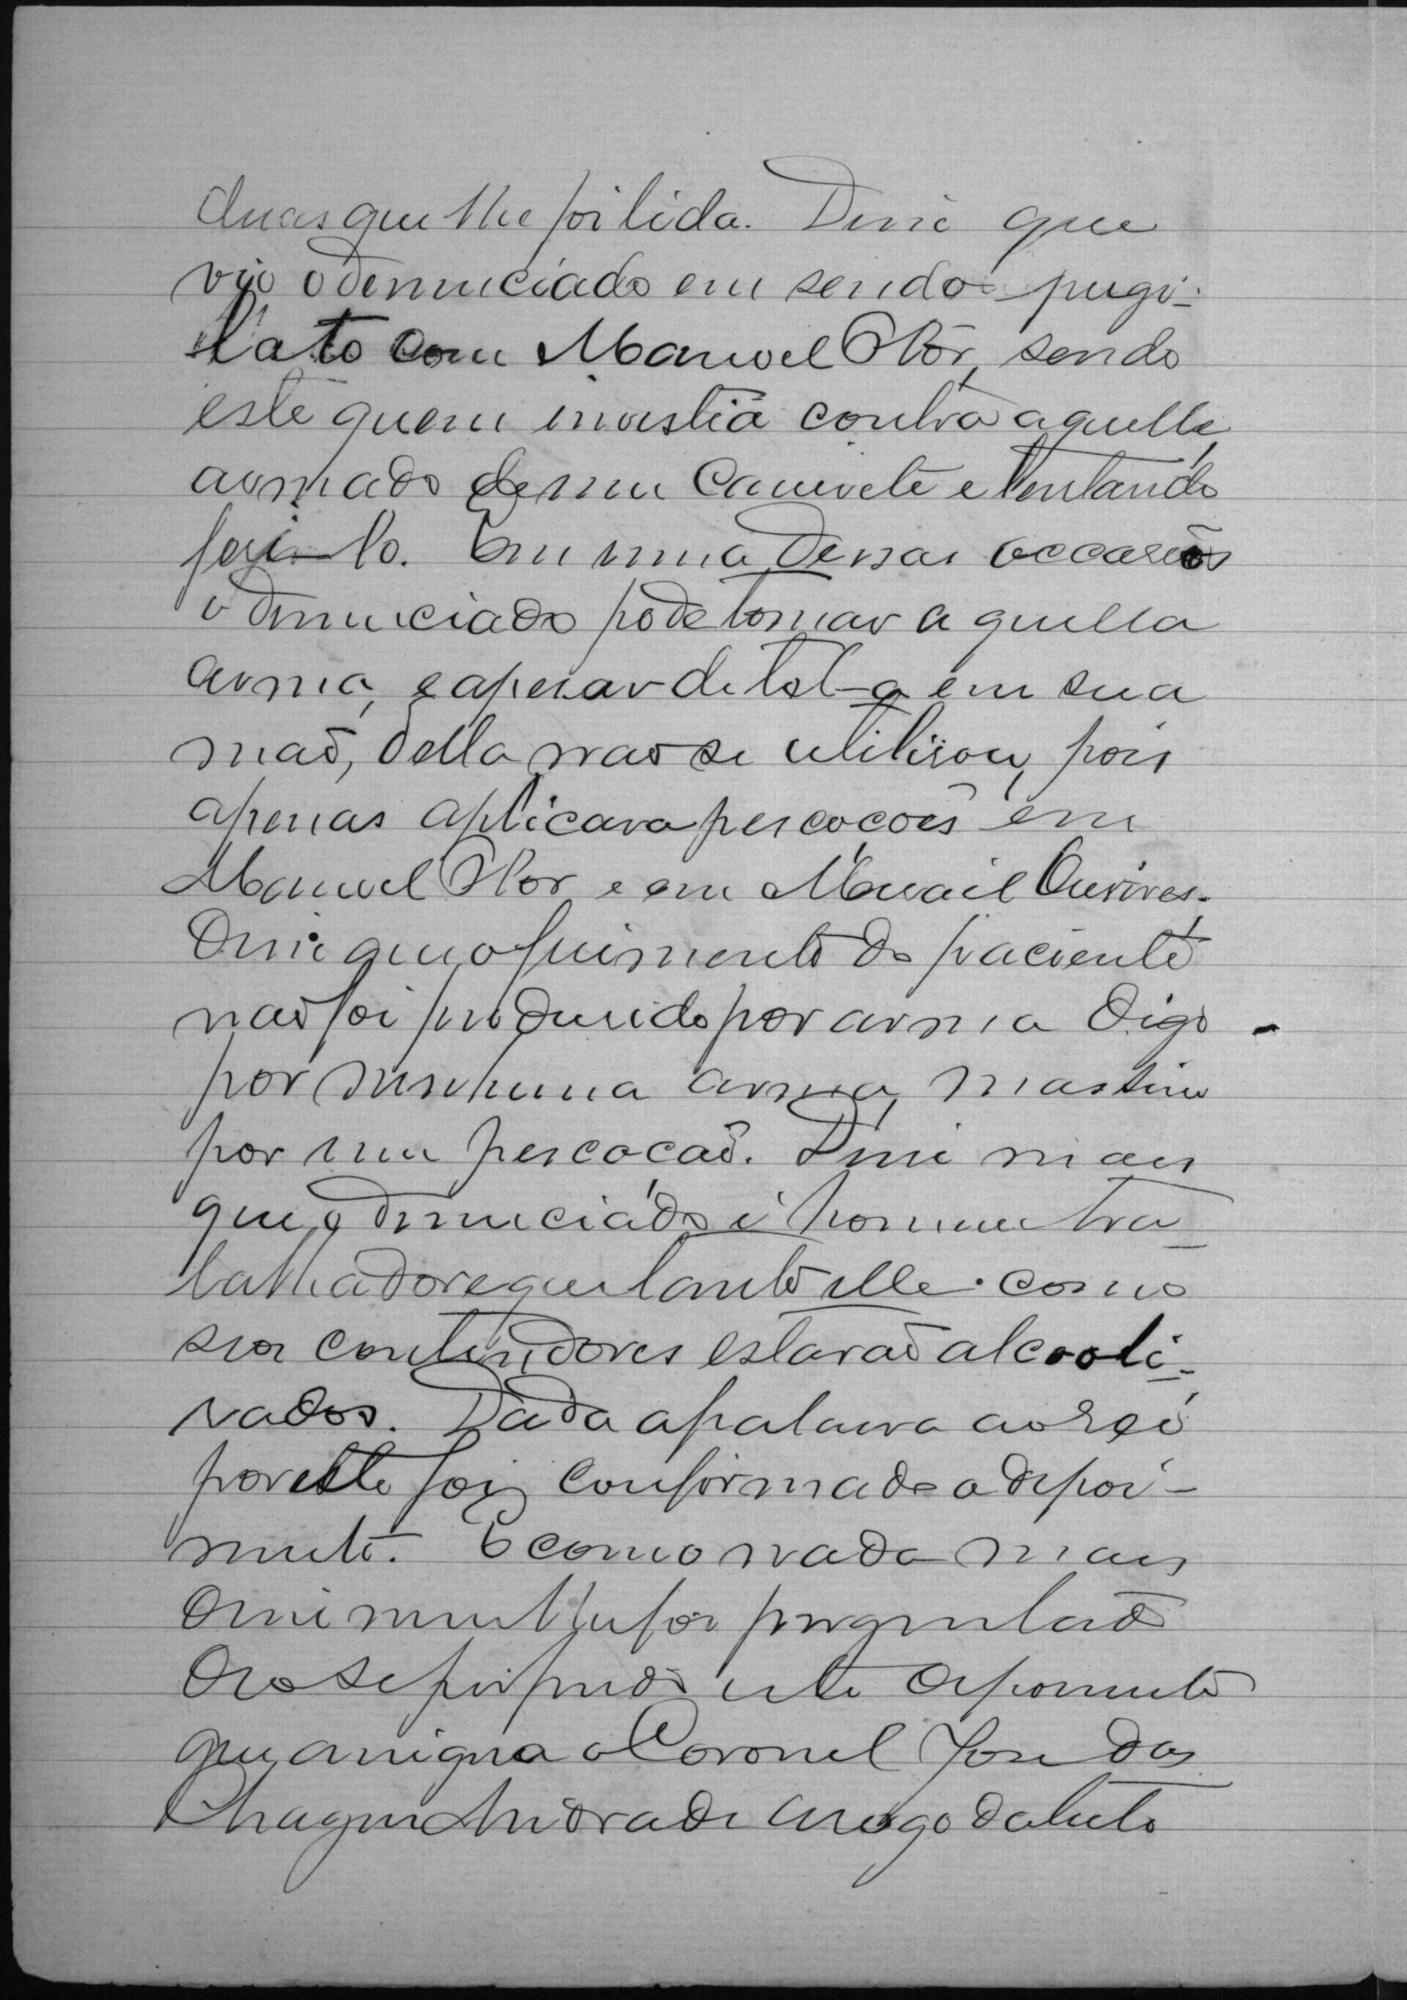 duas que lhe foi lida. Disse que
vio o denunciado em sendo pugi-
lato com Manoel Flôr, sendo
este quem investia contra aquelle,
armado de um canivete e tentando
feri-lo. Em uma dessas occasiões
o denunciado pode tomar aquella
arma, e apesar de tel-a em sua
mão, della não se utilisou, pois
apenas aplicara pescoções em
Manoel Flor e em Ourives.
Disse que o ferimento do paciente
não foi produsido por arma digo -
por nenhuma arma, mas sim
por um pescoção. Disse mais
que o denunciado é homem tra-
balhador e que tanto elle como
seos contendores estavão alcooli-
sados. Dada a palavra ao reo
por este foi confirmado o depoi-
mento. E como nada mais
disse nem lhe foi perguntado
deo-se por findo este depoimento
que assigna o Coronel José das
Chagas Andrade a rogo da teste